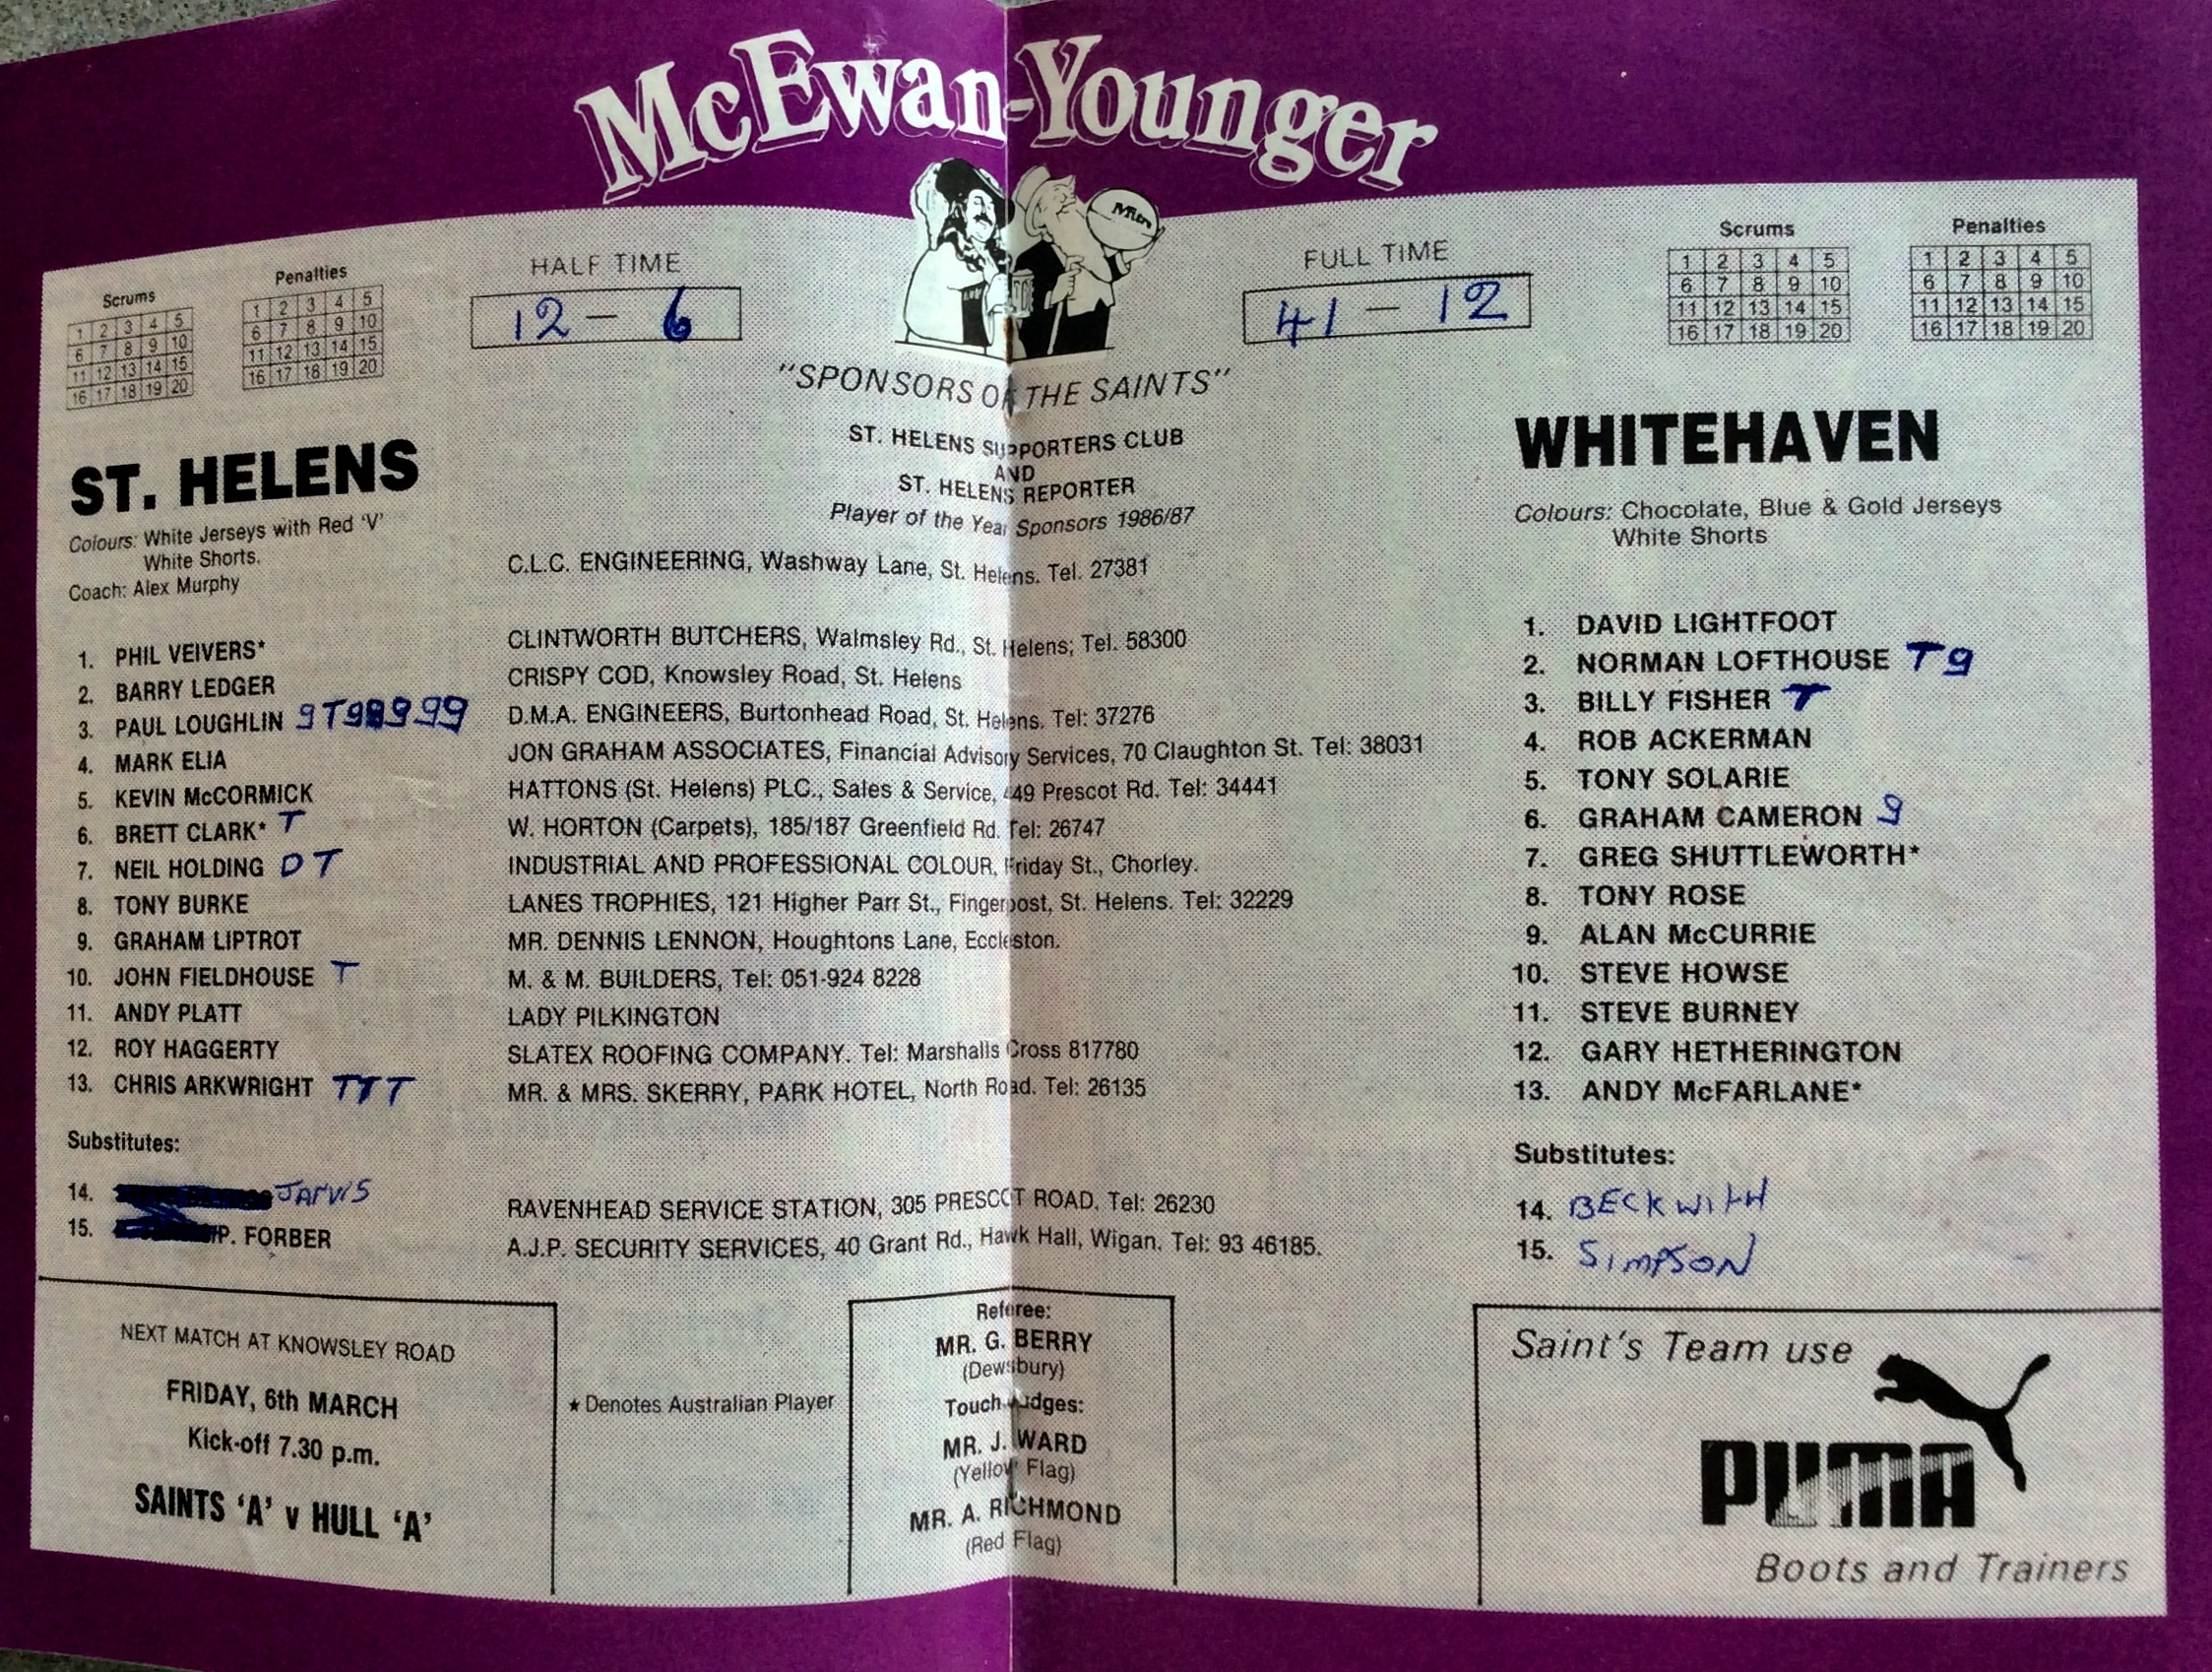 McEwan-Younger
Mitre
Scrums
1 2 3 4 5
6 7 8 9 10
11 12 13 14 15
16 17 18 19 20
Penalties
1 2 3 4 5
6 7 8 9 10
11 12 13 14 15
16 17 18 19 20
HALF TIME
12 - 6
FULL TIME
41 - 12
Scrums
1 2 3 4 5
6 7 8 9 10
11 12 13 14 15
16 17 18 19 20
Penalties
1 2 3 4 5
6 7 8 9 10
11 12 13 14 15
16 17 18 19 20
"SPONSORS OF THE SAINTS"
ST. HELENS SUPPORTERS CLUB
AND
ST. HELENS REPORTER
Player of the Year Sponsors 1986/87
C.L.C. ENGINEERING, Washway Lane, St. Helens. Tel. 27381
ST. HELENS
Colours: White Jerseys with Red 'V'
White Shorts.
Coach: Alex Murphy
1. PHIL VEIVERS*
2. BARRY LEDGER
3. PAUL LOUGHLIN 9T99999
4. MARK ELIA
5. KEVIN McCORMICK
6. BRETT CLARK* T
7. NEIL HOLDING D T
8. TONY BURKE
9. GRAHAM LIPTROT
10. JOHN FIELDHOUSE T
11. ANDY PLATT
12. ROY HAGGERTY
13. CHRIS ARKWRIGHT TTT
Substitutes:
14. JARVIS
15. P. FORBER
CLINTWORTH BUTCHERS, Walmsley Rd., St. Helens; Tel. 58300
CRISPY COD, Knowsley Road, St. Helens
D.M.A. ENGINEERS, Burtonhead Road, St. Helens. Tel: 37276
JON GRAHAM ASSOCIATES, Financial Advisory Services, 70 Claughton St. Tel: 38031
HATTONS (St. Helens) PLC., Sales & Service, 449 Prescot Rd. Tel: 34441
W. HORTON (Carpets), 185/187 Greenfield Rd. Tel: 26747
INDUSTRIAL AND PROFESSIONAL COLOUR, Friday St., Chorley.
LANES TROPHIES, 121 Higher Parr St., Fingerpost, St. Helens. Tel: 32229
MR. DENNIS LENNON, Houghtons Lane, Eccleston.
M. & M. BUILDERS, Tel: 051-924 8228
LADY PILKINGTON
SLATEX ROOFING COMPANY. Tel: Marshalls Cross 817780
MR. & MRS. SKERRY, PARK HOTEL, North Road. Tel: 26135
RAVENHEAD SERVICE STATION, 305 PRESCOT ROAD. Tel: 26230
A.J.P. SECURITY SERVICES, 40 Grant Rd., Hawk Hall, Wigan. Tel: 93 46185.
WHITEHAVEN
Colours: Chocolate, Blue & Gold Jerseys
White Shorts
1. DAVID LIGHTFOOT
2. NORMAN LOFTHOUSE T9
3. BILLY FISHER T
4. ROB ACKERMAN
5. TONY SOLARIE
6. GRAHAM CAMERON 9
7. GREG SHUTTLEWORTH*
8. TONY ROSE
9. ALAN McCURRIE
10. STEVE HOWSE
11. STEVE BURNEY
12. GARY HETHERINGTON
13. ANDY McFARLANE*
Substitutes:
14. BECKWITH
15. SIMPSON
NEXT MATCH AT KNOWSLEY ROAD
FRIDAY, 6th MARCH
Kick-off 7.30 p.m.
SAINTS 'A' v HULL 'A'
★ Denotes Australian Player
Referee:
MR. G. BERRY
(Dewsbury)
Touch Judges:
MR. J. WARD
(Yellow Flag)
MR. A. RICHMOND
(Red Flag)
Saint's Team use
PUMA
Boots and Trainers